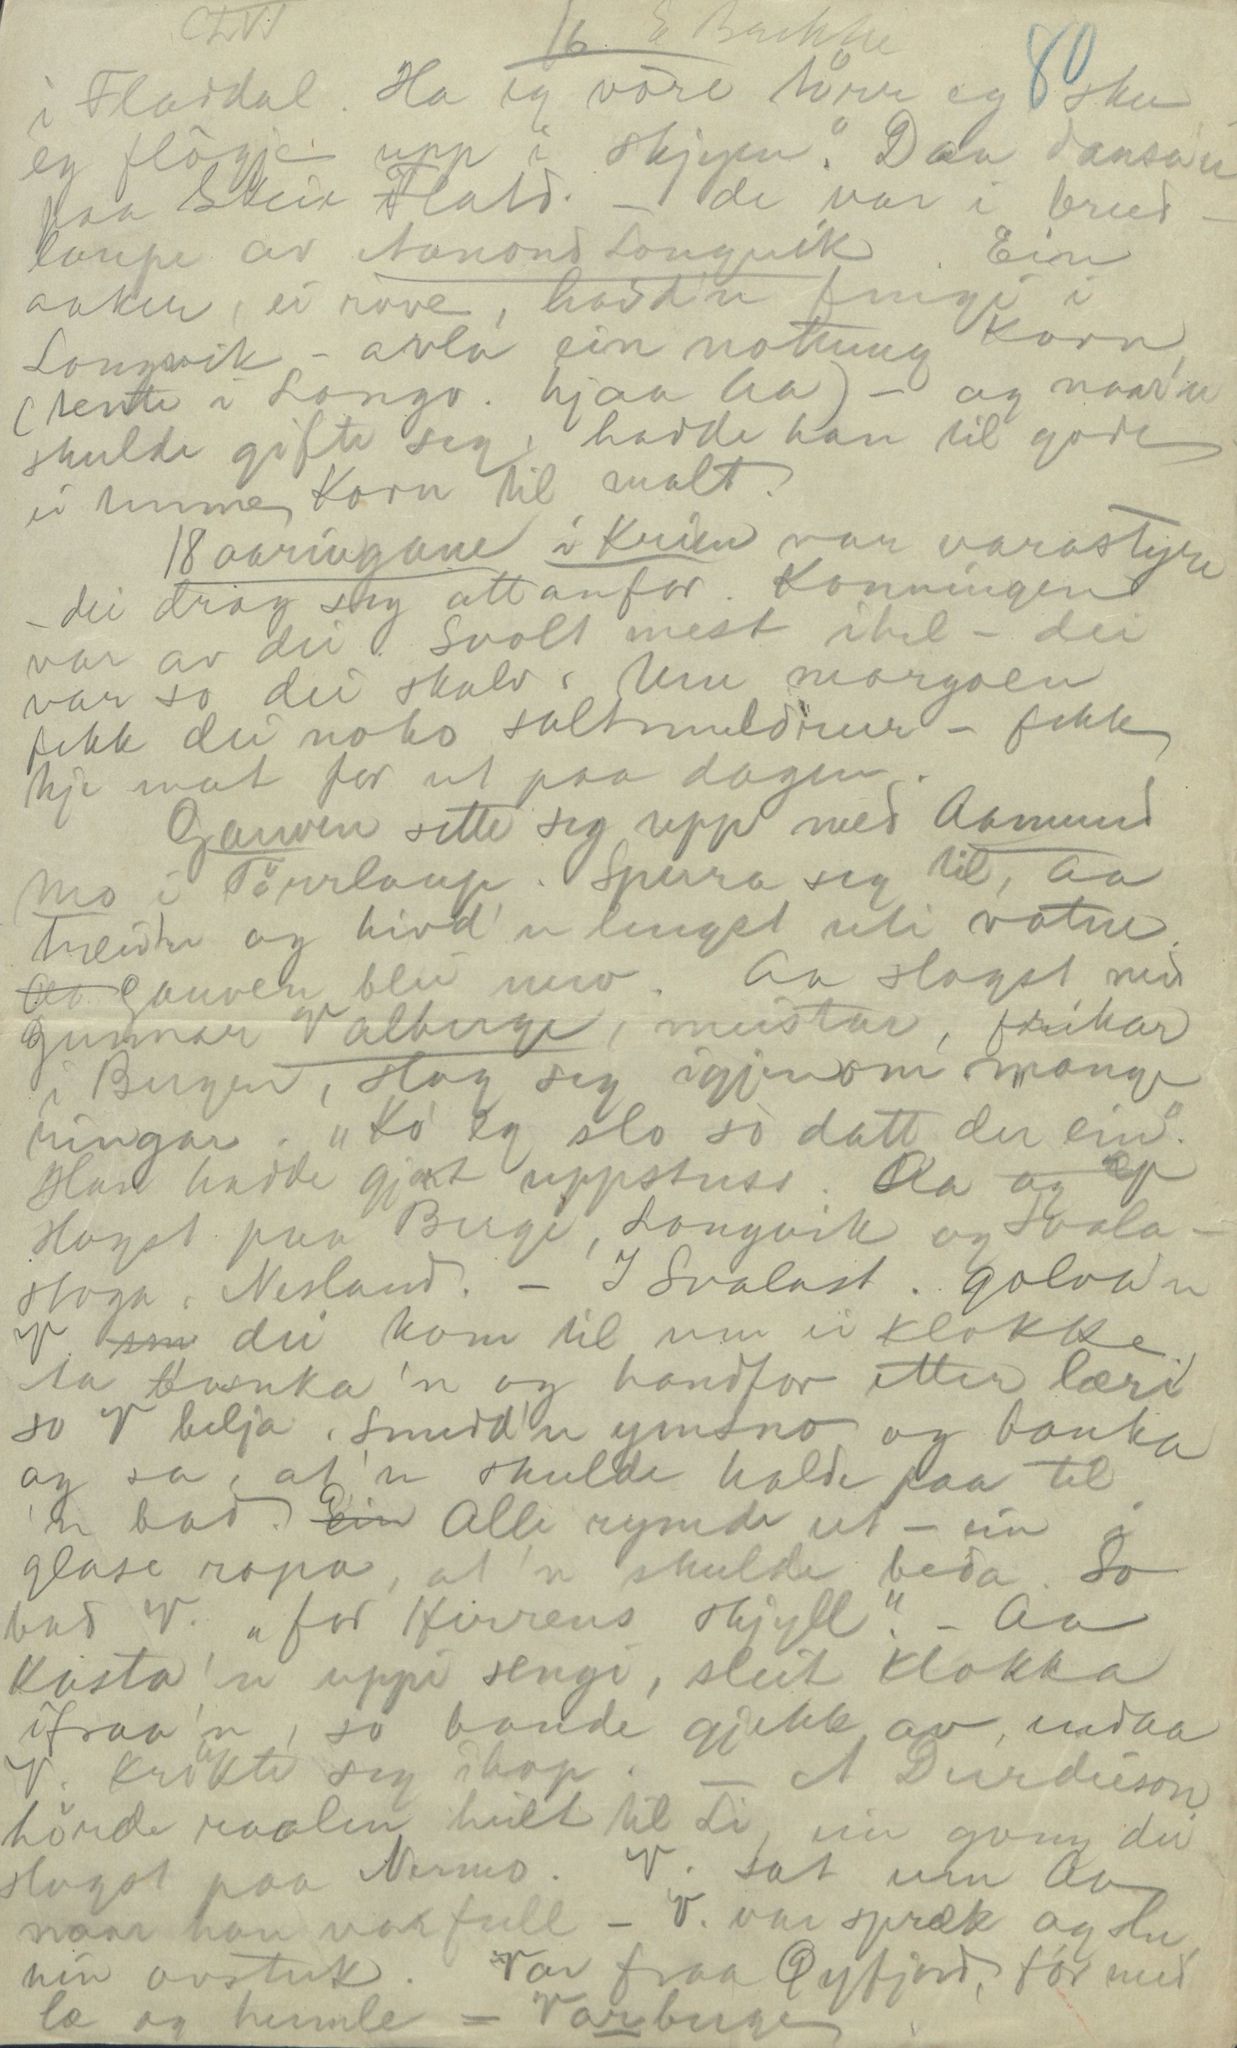 CLVI 16 E Bakke 80
i Fladdal. Ha eg vore tørr eg sku
eg fløgje upp i skjyen". Daa dansa'n
paa Stein Flatd. – de var i brud-
laupe av Aanond Longvik. Ein
aaker, ei rove, hadd'n fingi i
Longvik – avla ein notung Korn,
(tente i Longv. hjaa Aa) – og naar'n
skulde gifte seg, hadde han til gode
ei tunne Korn til malt.
18 aaringane i Krien var varastyre
– dei drog seg attanfor. Konningen
var av dei. Svolt mest ihel – dei
var so dei skalv. Um morgoen
fekk dei noko saltmeldrur – fekk
kje mat for ut paa dagen.
Gauven sette seg upp med Aamund
Mo i Tørrlaup. Sperra seg til, Aa
treivn og hivd'n lengst uti vatne.
Gauven blei meiv. Aa slogst med
Gunnar Valberge, meistar,
i Bergen, slog seg igjenom mange
ringar. "Ko eg slo so datt der ein".
Han hadde gjort uppstuss. Aa og
slogst paa Berge, Longvik og Svala-
stoga, Nesland. – I Svalast. golva'n
V. dei kom til um ei Klokke.
Aa 'n og handfor etter læri
so V belja. Smedd'n ymsno og banka
og sa, at'n skulde halde paa til
'n bad. Alle rymde ut – ein i
glase ropa, at'n skulde beda. So
bad V. "for Herrens skjyll". – Aa
Kasta'n uppi sengi, sleit Klokka
ifraa'n, so bande gjekk av, endaa
V. krøkte seg ihop. – A Durdeison
hørde raalen heilt til Li, ein gong dei
slogst paa Nermo. V. sat um Aa
naar han var full – V. var spræk og
ein avstuk. Var fraa Øyfjord, før med
læ og humle = Varberge